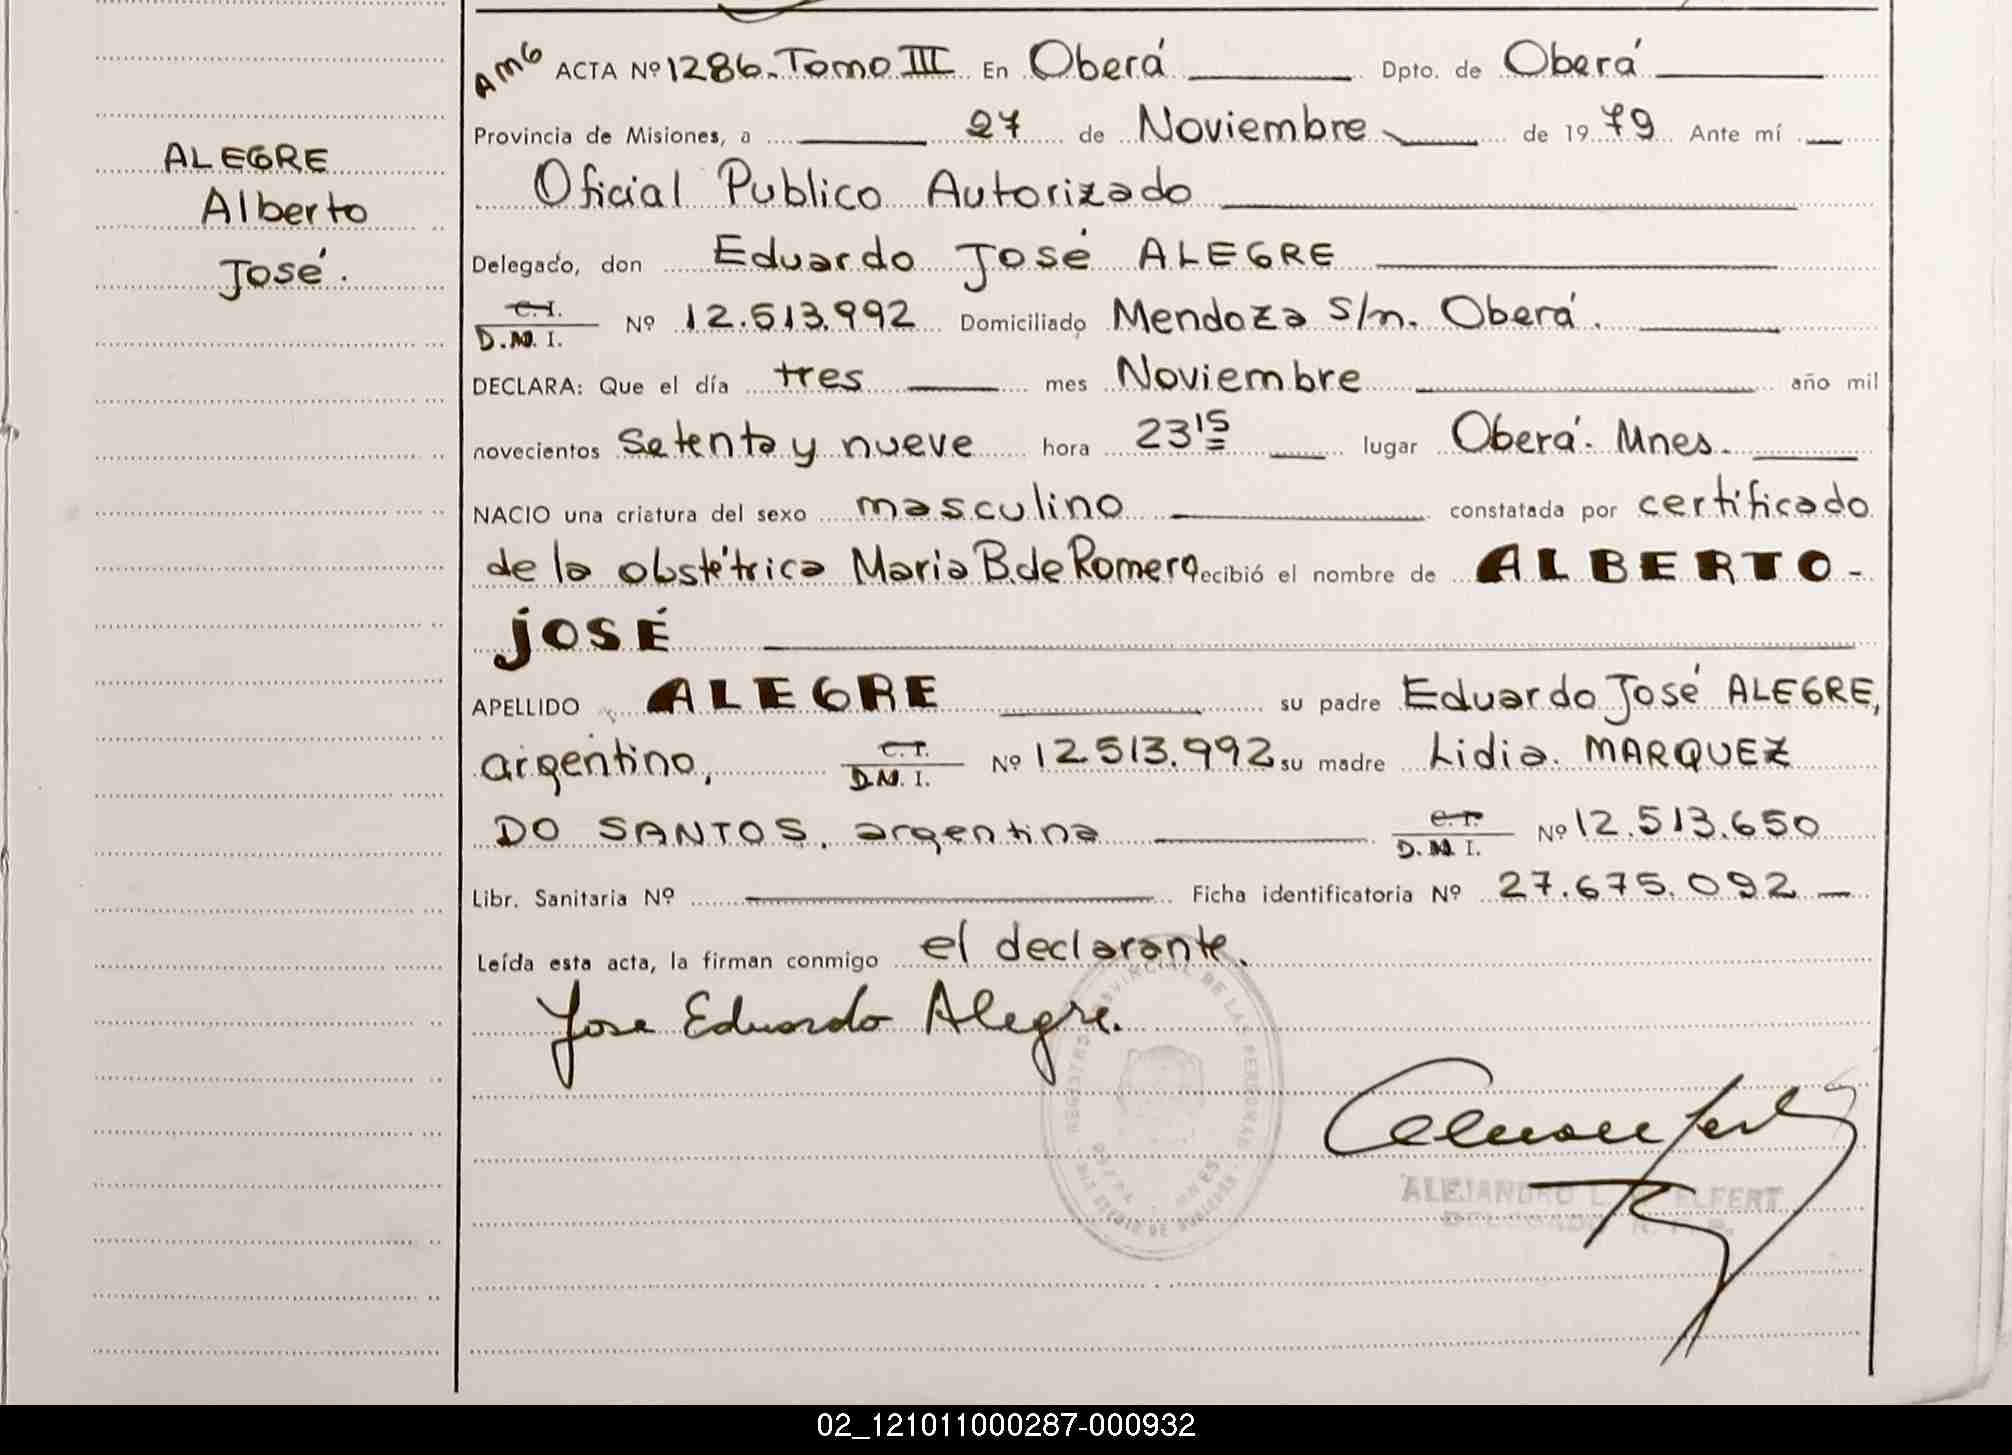 AMG ACTA Nº 1286. Tomo III En Oberá Dpto. de Oberá
Provincia de Misiones, a 27 de Noviembre de 1979 Ante mí
ALEGRE
Oficial Publico Autorizado
Alberto
José.
Delegado, don Eduardo José ALEGRE
C.I.
D.N.I. Nº 12.513.992 Domiciliado Mendoza s/n. Oberá.
DECLARA: Que el día tres mes Noviembre año mil
novecientos setenta y nueve hora 23 15 lugar Oberá. Mnes.
NACIO una criatura del sexo masculino constatada por certificado
de la obstétrica Maria B. de Romero recibió el nombre de ALBERTO-
JOSÉ
APELLIDO ALEGRE su padre Eduardo José ALEGRE,
argentino, C.I.
D.N.I. Nº 12.513.992 su madre Lidia. MARQUEZ
DO SANTOS, argentina C.I.
D.N.I. Nº 12.513.650
Libr. Sanitaria Nº Ficha identificatoria Nº 27.675.092
Leída esta acta, la firman conmigo el declarante.
Jose Eduardo Alegre.
REGISTRO PROVINCIAL DE LAS PERSONAS
ALEJANDRO L. ELFERT
DELGADO
02_121011000287-000932